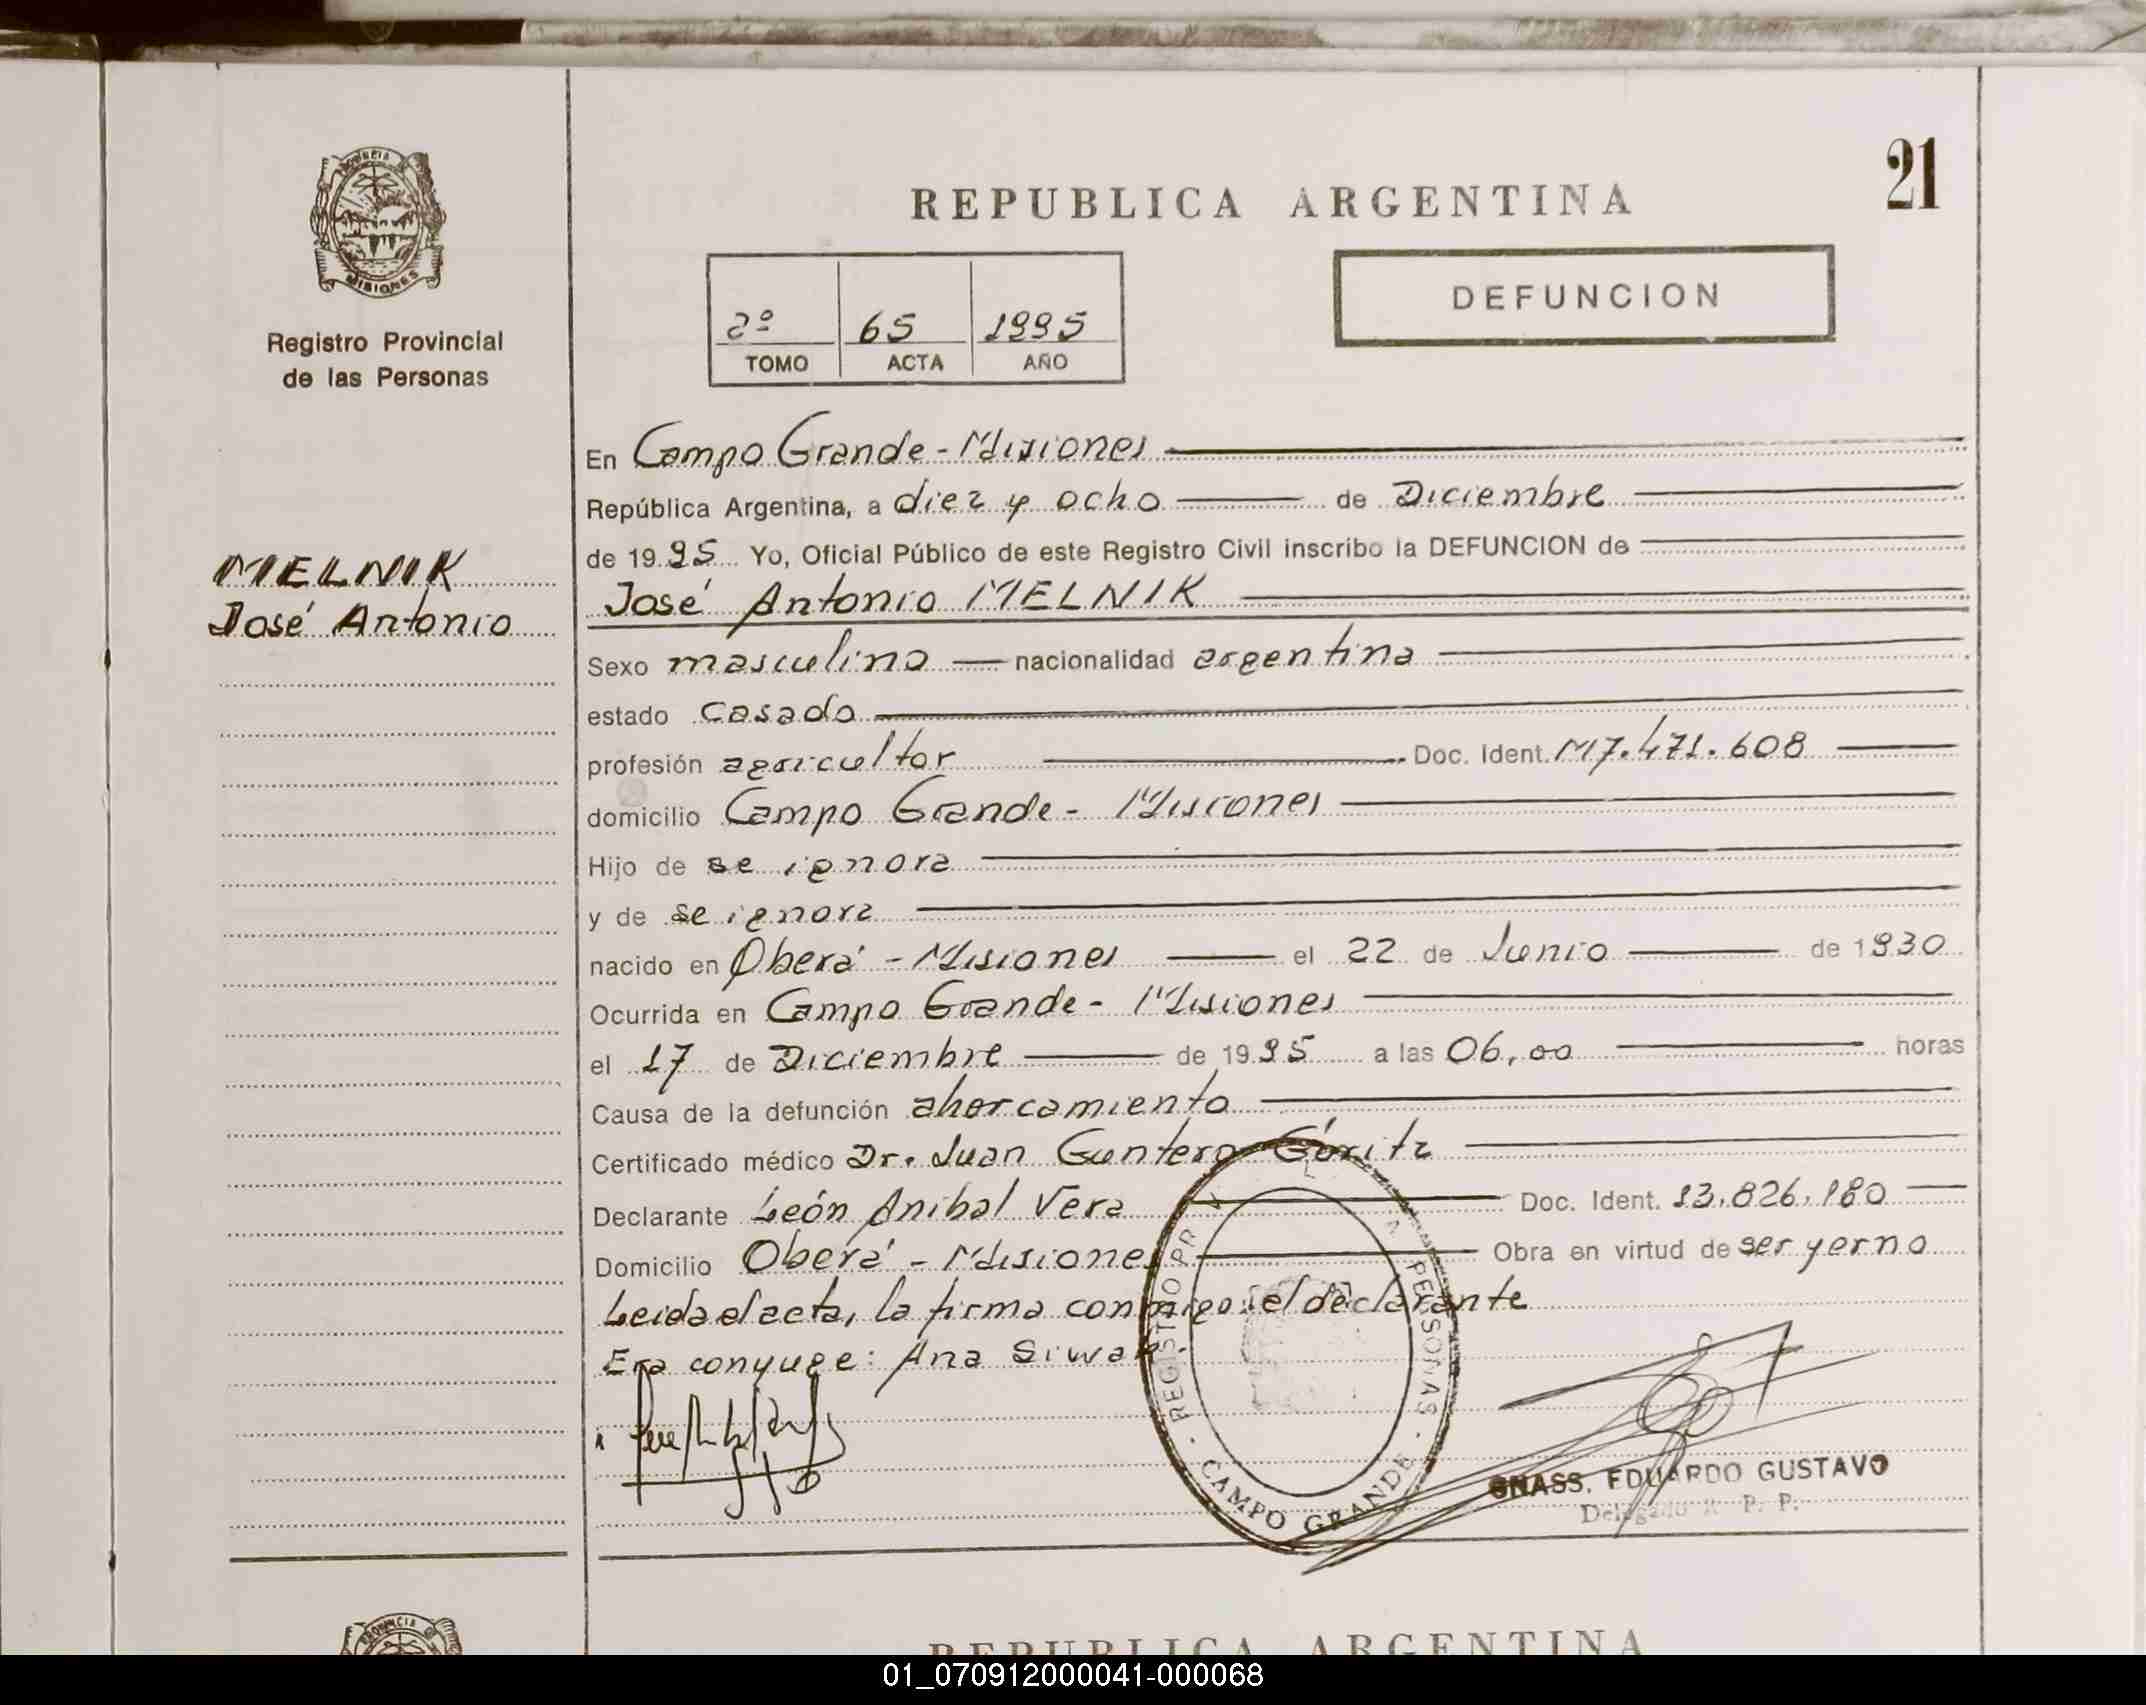 21
PROVINCIA DE
MISIONES
REPUBLICA ARGENTINA
DEFUNCION
Registro Provincial
de las Personas
2º 65 1995
TOMO ACTA AÑO
MELNIK
José Antonio
En Campo Grande - Misiones
República Argentina, a diez y ocho de Diciembre
de 1995 Yo, Oficial Público de este Registro Civil inscribo la DEFUNCION de
José Antonio MELNIK
Sexo masculino nacionalidad argentina
estado casado
profesión agricultor Doc. Ident. M7.471.608
domicilio Campo Grande - Misiones
Hijo de se ignora
y de se ignora
nacido en Oberá - Misiones el 22 de Junio de 1930
Ocurrida en Campo Grande - Misiones
el 17 de Diciembre de 1995 a las 06,00 horas
Causa de la defunción ahorcamiento
Certificado médico Dr. Juan Guntero Góritz
Declarante León Anibal Vera Doc. Ident. 13.826.180
Domicilio Oberá - Misiones Obra en virtud de ser yerno
Leida el acta, la firma conmigo: el declarante
Era conyuge: Ana Siwak.
REGISTRO PR PERSONAS
CAMPO GRANDE
GNASS. EDUARDO GUSTAVO
Delegado R. P. P.
REPUBLICA ARGENTINA
01_070912000041-000068